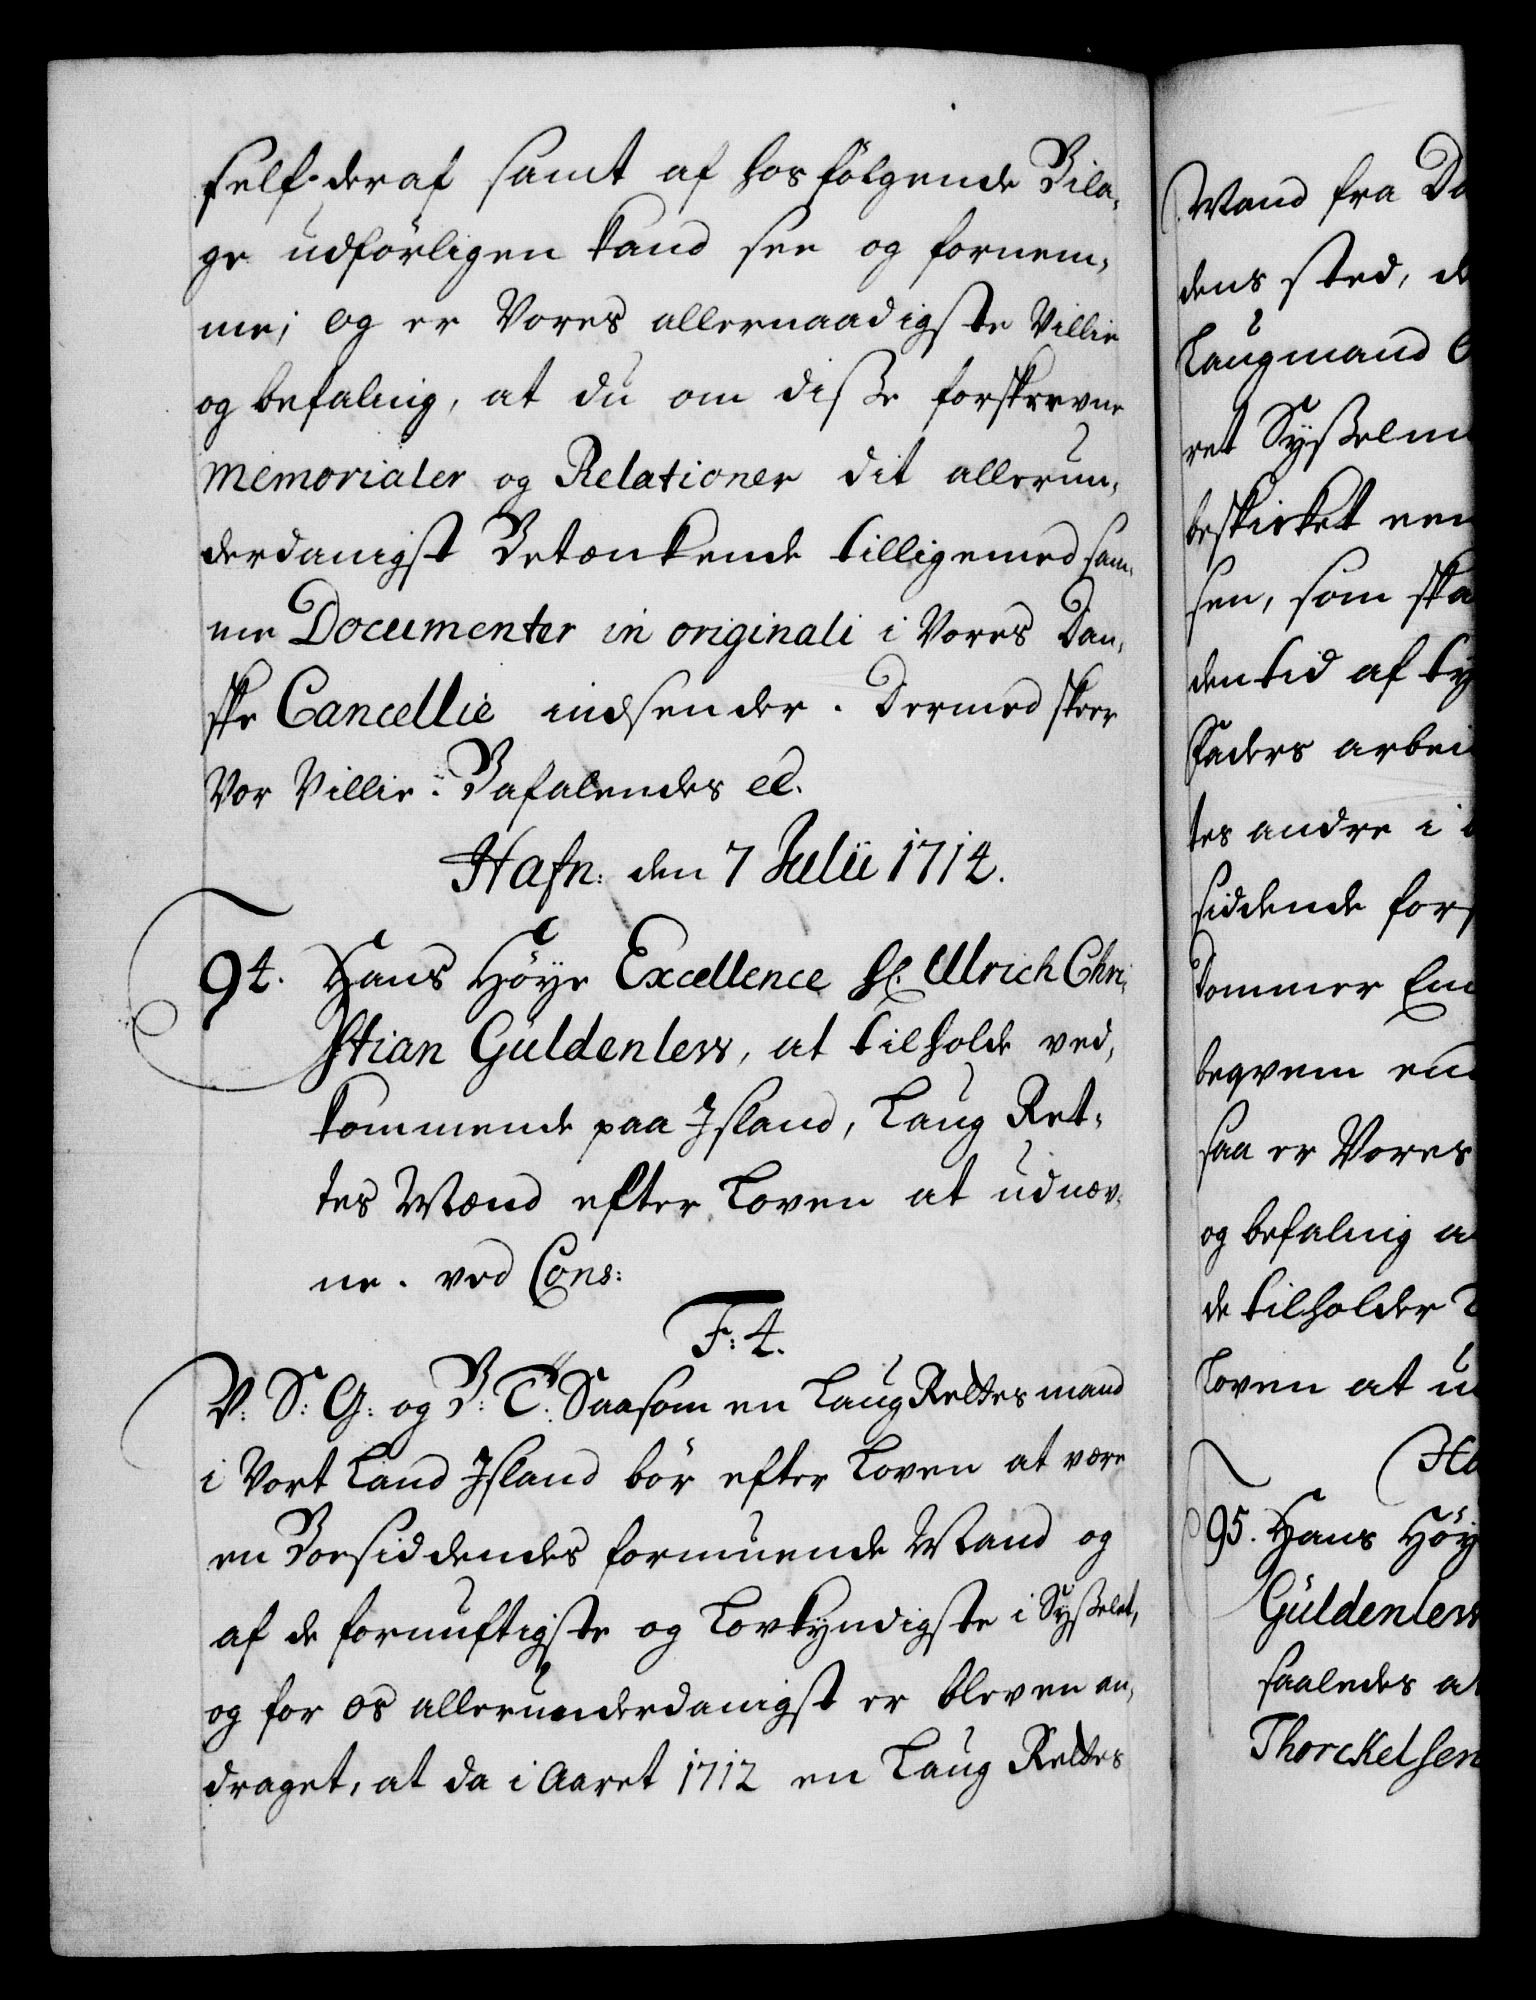 self deraf samt af hosfølgende Bila,
ge udførligen kand see og fornem,
me; og er Vores allernaadigste Villie
og befaling, at du om disse forskrevne
Memorialer og Relationer dit allerun,
derdanigst Betænkende tilligemed sam,
me Documenter in originali i Vores Dan,
ske Cancellie indsender. Dermed skeer
Vor Villie. Befalendes etc.
Hafn: den 7 Julii 1714.
94. Hans Höye Excellence H. Ulrich Chri,
stian Güldenlew, at tilholde ved,
kommende paa Jsland, Laug Ret,
tes Mænd efter Loven at udnæv,
ne. ved Cons:
F: 4.
V: S: G: og B: T: Saasom en Laug Rettes mand
i Vort Land Jsland bör efter Loven at være
en Boesiddendes formuende Mand og
af de fornuftigste og Lovkyndigste i Sysselet,
og for os allerunderdanigst er bleven an,
draget, at da i Aaret 1712 en Laug Rettes
Mand fra Da
dens sted, de
Laugmand
ret Sysselm
beskicket een
sen, som ska
den tid af ty
Faders arbei
tes andre i
siddende for
Dommer Em
beqvem en
saa er Vores
og befaling a
de tilholder
Loven at u
Ha
95. Hans Höy
Güldenlew
saaledes at
Thorckelsen